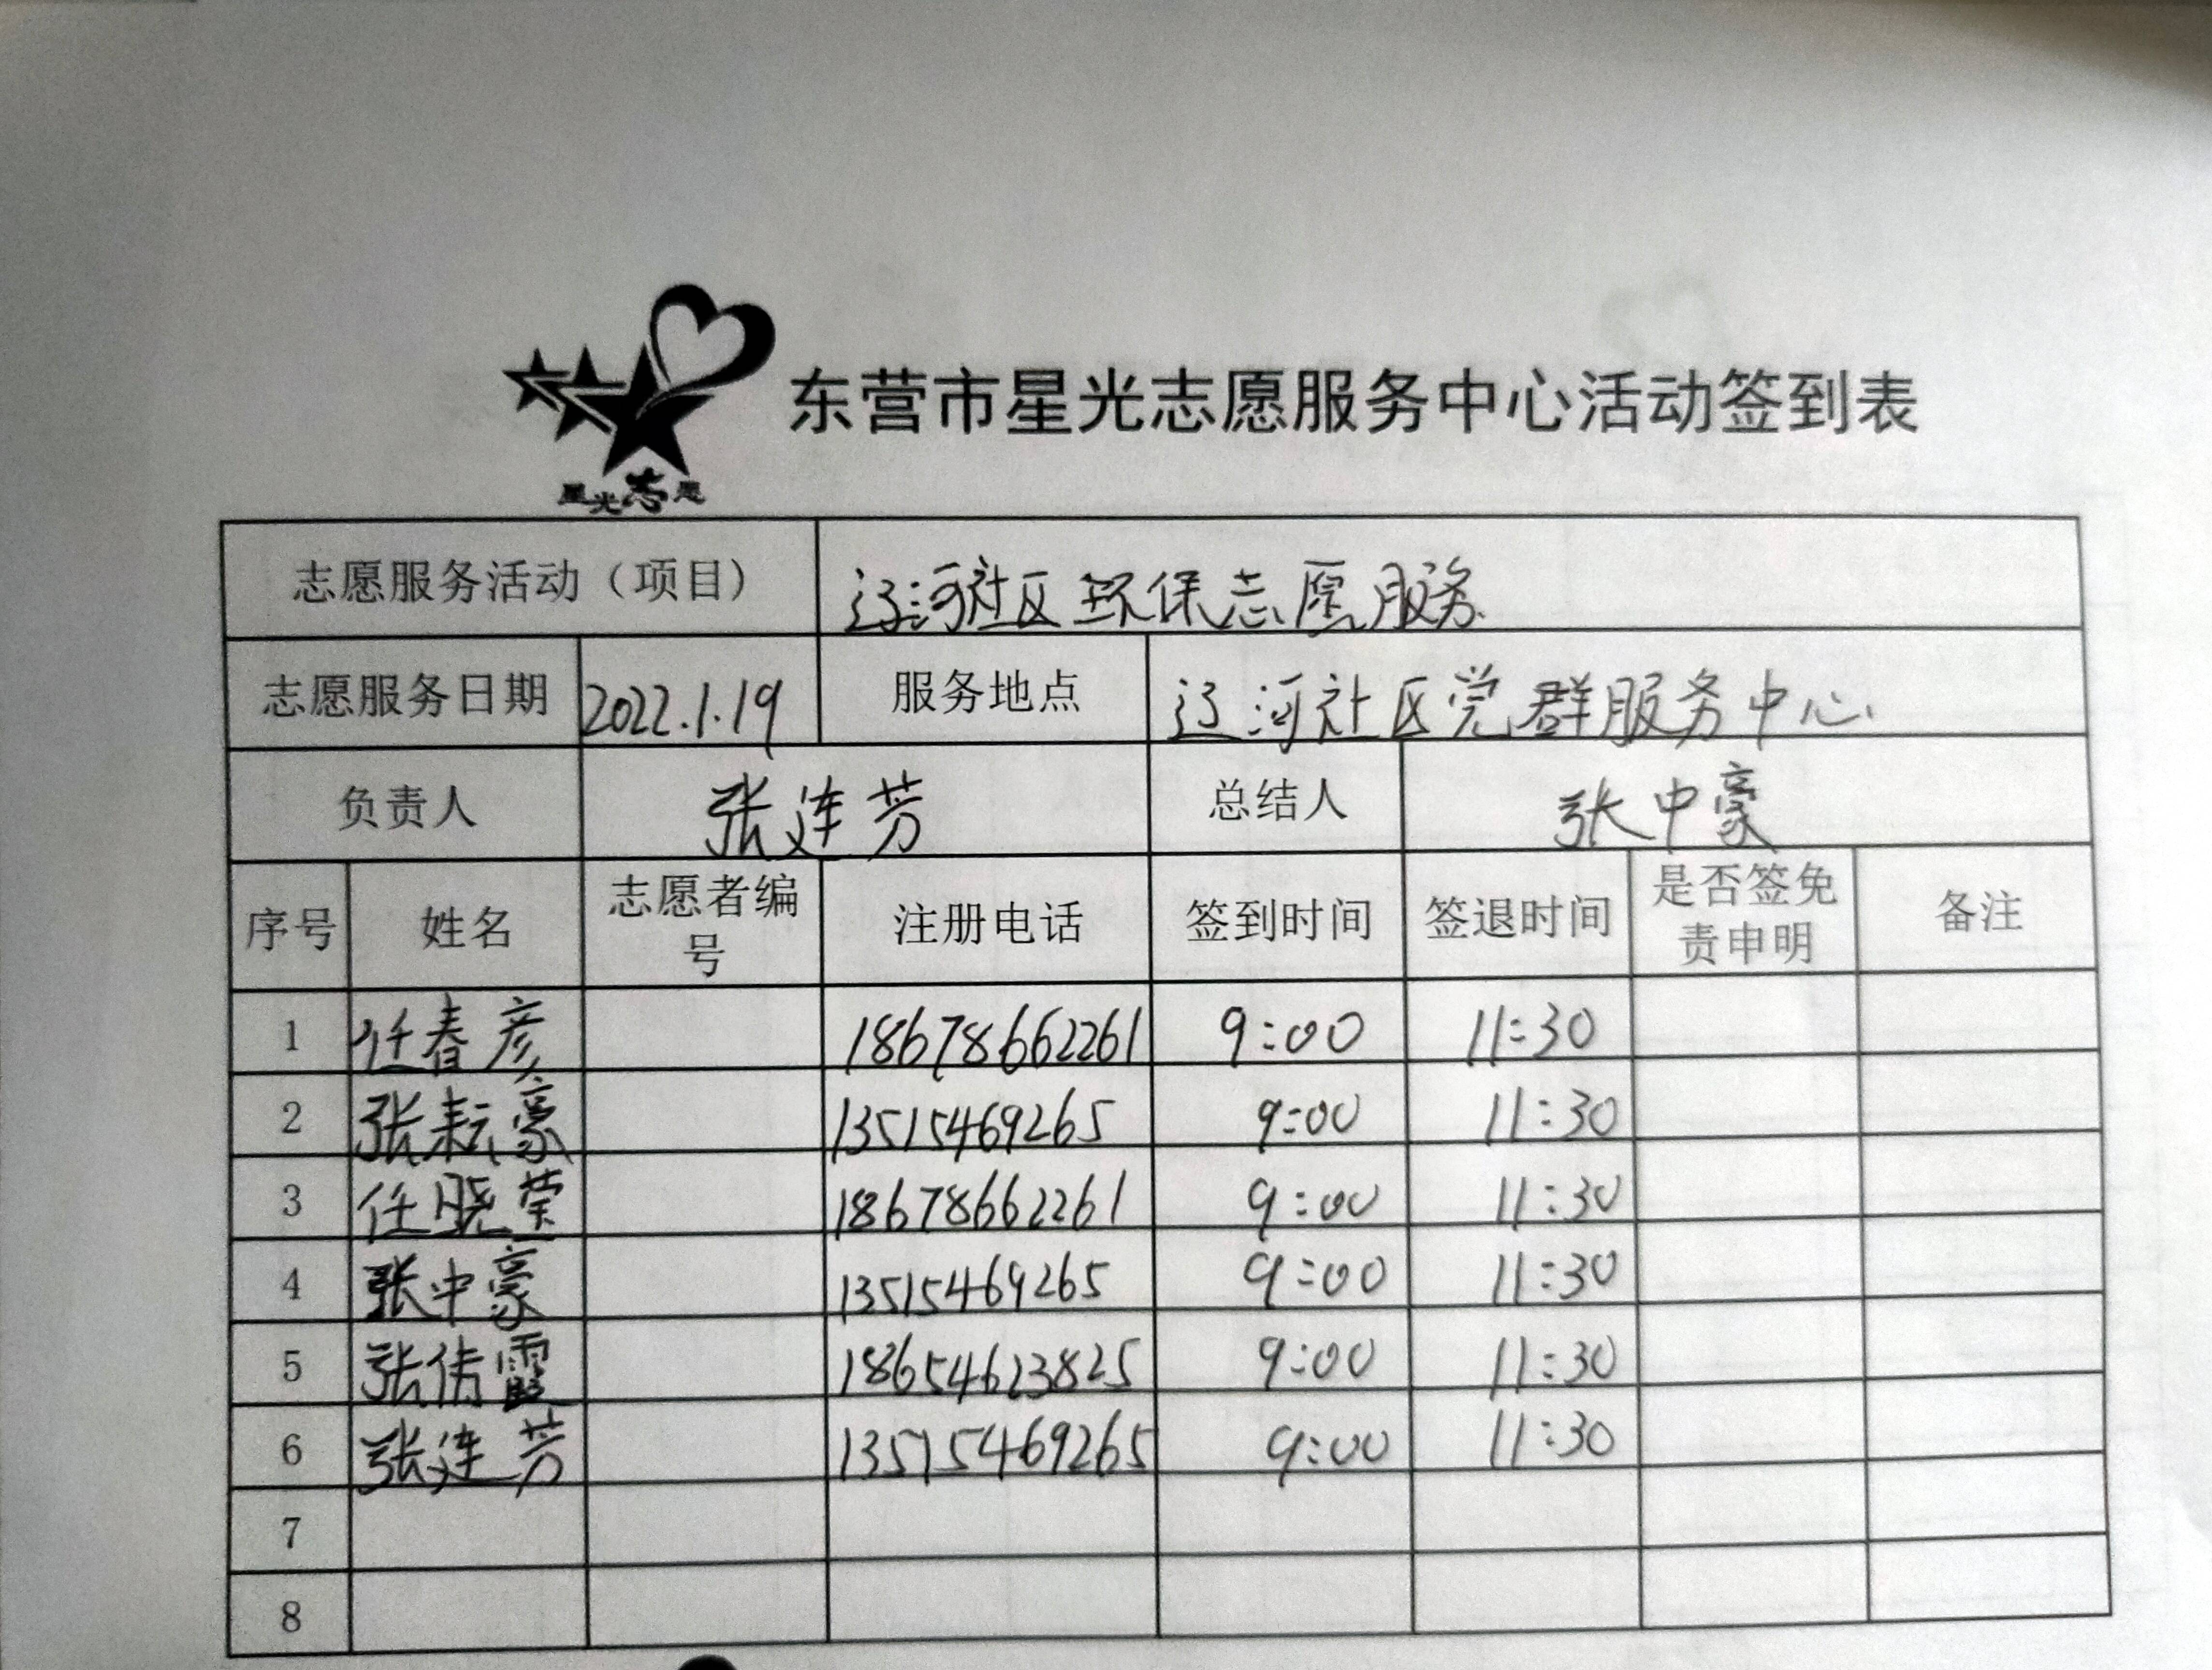 东营市星光志愿服务中心活动签到表
星光志愿
志愿服务活动（项目） 辽河社区环保志愿服务
志愿服务日期 2022.1.19 服务地点 辽河社区党群服务中心
负责人 张连芳 总结人 张中豪
序号 姓名 志愿者编号 注册电话 签到时间 签退时间 是否签免责申明 备注
1 任春彦 18678662261 9:00 11:30
2 张耘豪 13515469265 9:00 11:30
3 任晓莹 18678662261 9:00 11:30
4 张中豪 13515469265 9:00 11:30
5 张倩霞 18654623825 9:00 11:30
6 张连芳 13515469265 9:00 11:30
7
8